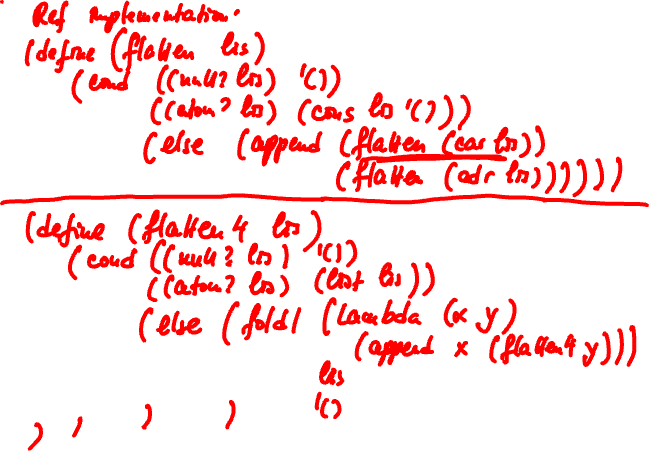 Ref implementation.
(define (flatten lis)
(cond ((null? lis) '())
((atom? lis) (cons lis '()))
(else (append (flatten (car lis))
(flatten (cdr lis))))))
(define (flatten4 lis)
(cond ((null? lis) '())
((atom? lis) (list lis))
(else (foldl (lambda (x y)
(append x (flatten4 y)))
lis
'()
) ) ) )